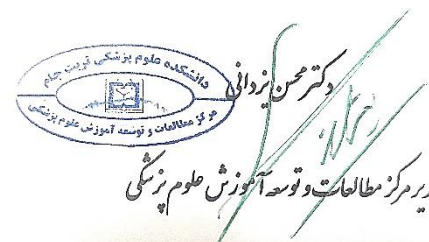 دانشکده علوم پزشکی تربت جام
مرکز مطالعات و توسعه آموزش علوم پزشکی
دکتر محسن ایزدانی
دیر مرکز مطالعات و توسعه آموزش علوم پزشکی